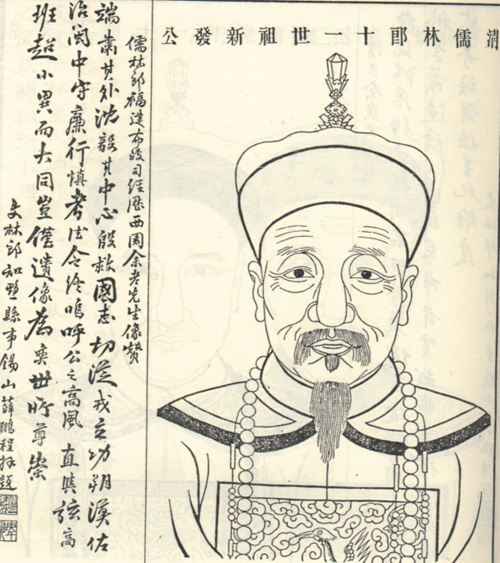 清儒林郎十一世祖新發公
儒林郎福建布政司經歷西園余老先生像贊
端肅其外沈毅其中心殷救國志切從戎立功朔漠佐
治閩中守廉行慎考令終嗚呼公之高風直與高
班超小異而大同豈僅遺像為奕世所尊崇
文林郎知縣事錫山薛鵬程拜題